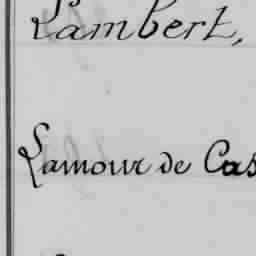 Lambert,
Lamour de Cas